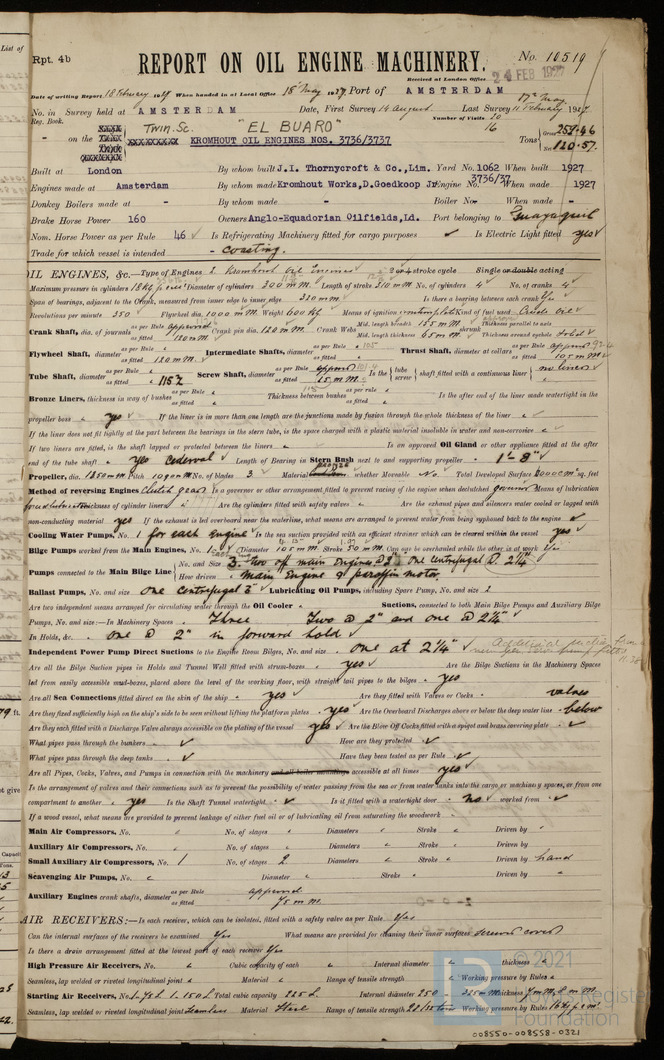 List of
Rpt. 4b
REPORT ON OIL ENGINE MACHINERY.
No. 10519
Received at London Office 24 FEB 1927
Date of writing Report 18 February 1927 When handed in at Local Office 18 May 1927 Port of AMSTERDAM
No. in Reg. Book. Survey held at AMSTERDAM Date, First Survey 14 August Last Survey 11 February 1927
17th May
Number of Visits 20
16
on the Twin Sc. "EL BUARO" Tons Gross 259.46
KROMHOUT OIL ENGINES NOS. 3736/3737 Net 120.57
Built at London By whom built J.I. Thornycroft & Co., Lim. Yard No. 1062 When built 1927
Engines made at Amsterdam By whom made Kromhout Works, D.Goedkoop Jr. Engine No. 3736/37 When made 1927
Donkey Boilers made at - By whom made - Boiler No. - When made -
Brake Horse Power 160 Owners Anglo-Equadorian Oilfields, Ld. Port belonging to Guayaquil
Nom. Horse Power as per Rule 46 Is Refrigerating Machinery fitted for cargo purposes Is Electric Light fitted yes
Trade for which vessel is intended - coasting.
OIL ENGINES, &c.—Type of Engines 2 Kromhout Oil Engines 2 or 4 stroke cycle Single or double acting
Maximum pressure in cylinders Diameter of cylinders 300 m.m. Length of stroke 310 m.m. No. of cylinders 4 No. of cranks 4
Span of bearings, adjacent to the Crank, measured from inner edge to inner edge 320 m.m Is there a bearing between each crank Yes
Revolutions per minute 350 Flywheel dia. 1000 m.m. Weight 600 k Means of ignition Kind of fuel used Crude oil
Crank Shaft, dia. of journals as per Rule approved as fitted 120 m.m Crank pin dia. 120 m.m. Crank Webs Mid. length breadth 155 m.m Mid. length thickness 65 m.m shrunk Thickness parallel to axis Thickness around eyehole solid
Flywheel Shaft, diameter as per Rule as fitted 120 m.m. Intermediate Shafts, diameter as per Rule as fitted Thrust Shaft, diameter at collars as per Rule approved as fitted 105 m.m.
Tube Shaft, diameter as per Rule as fitted 115 Screw Shaft, diameter as per Rule approved as fitted Is the tube screw shaft fitted with a continuous liner no liner
Bronze Liners, thickness in way of bushes as per Rule as fitted Thickness between bushes as per rule as fitted Is the after end of the liner made watertight in the
propeller boss yes If the liner is in more than one length are the junctions made by fusion through the whole thickness of the liner
If the liner does not fit tightly at the part between the bearings in the stern tube, is the space charged with a plastic material insoluble in water and non-corrosive
If two liners are fitted, is the shaft lapped or protected between the liners Is an approved Oil Gland or other appliance fitted at the after
end of the tube shaft yes cedervall Length of Bearing in Stern Bush next to and supporting propeller 1'-8"
Propeller, dia. 1250 m.m Pitch No. of blades 3. Material bronze whether Moveable No Total Developed Surface sq. feet
Method of reversing Engines Is a governor or other arrangement fitted to prevent racing of the engine when declutched governor Means of lubrication
forced lubrication Thickness of cylinder liners Are the cylinders fitted with safety valves Are the exhaust pipes and silencers water cooled or lagged with
non-conducting material yes If the exhaust is led overboard near the waterline, what means are arranged to prevent water from being syphoned back to the engine
Cooling Water Pumps, No. 1 for each engine Is the sea suction provided with an efficient strainer which can be cleared within the vessel yes
Bilge Pumps worked from the Main Engines, No. 1- Diameter 105 m.m Stroke 50 m.m. Can one be overhauled while the other is at work Yes
Pumps connected to the Main Bilge Line No. and Size 3. two off main Engines @ 2" one centrifugal @ 2 1/4"
How driven Main Engine & paraffin motor.
Ballast Pumps, No. and size one centrifugal 3" Lubricating Oil Pumps, including Spare Pump, No. and size 2
Are two independent means arranged for circulating water through the Oil Cooler Suctions, connected to both Main Bilge Pumps and Auxiliary Bilge
Pumps, No. and size:—In Machinery Spaces Three Two @ 2" and one @ 2 1/4"
In Holds, &c. one @ 2" in forward hold
Independent Power Pump Direct Suctions to the Engine Room Bilges, No. and size one at 2 1/4" Additional suction from
Are all the Bilge Suction pipes in Holds and Tunnel Well fitted with strum-boxes yes Are the Bilge Suctions in the Machinery Spaces
led from easily accessible mud-boxes, placed above the level of the working floor, with straight tail pipes to the bilges yes
Are all Sea Connections fitted direct on the skin of the ship yes Are they fitted with Valves or Cocks valves
Are they fixed sufficiently high on the ship's side to be seen without lifting the platform plates yes Are the Overboard Discharges above or below the deep water line below
Are they each fitted with a Discharge Valve always accessible on the plating of the vessel yes Are the Blow Off Cocks fitted with a spigot and brass covering plate
What pipes pass through the bunkers How are they protected
What pipes pass through the deep tanks Have they been tested as per Rule
Are all Pipes, Cocks, Valves, and Pumps in connection with the machinery and all boiler mountings accessible at all times yes
Is the arrangement of valves and their connections such as to prevent the possibility of water passing from the sea or from water tanks into the cargo or machinery spaces, or from one
compartment to another yes Is the Shaft Tunnel watertight Is it fitted with a watertight door no worked from
If a wood vessel, what means are provided to prevent leakage of either fuel oil or of lubricating oil from saturating the woodwork
Main Air Compressors, No. No. of stages Diameters Stroke Driven by
Auxiliary Air Compressors, No. No. of stages Diameters Stroke Driven by
Small Auxiliary Air Compressors, No. 1 No. of stages 2 Diameters Stroke Driven by hand
Scavenging Air Pumps, No. Diameter Stroke Driven by
Auxiliary Engines crank shafts, diameter as per Rule approved as fitted 75 m.m.
AIR RECEIVERS:—Is each receiver, which can be isolated, fitted with a safety valve as per Rule Yes
Can the internal surfaces of the receivers be examined Yes What means are provided for cleaning their inner surfaces screwed cover
Is there a drain arrangement fitted at the lowest part of each receiver Yes
High Pressure Air Receivers, No. Cubic capacity of each Internal diameter thickness
Seamless, lap welded or riveted longitudinal joint Material Range of tensile strength Working pressure by Rules
Starting Air Receivers, No. 1-75 L. 1-150 L Total cubic capacity 225 L. Internal diameter 250 - 325 m.m thickness 7 m.m 8 m.m.
Seamless, lap welded or riveted longitudinal joint Seamless Material Steel Range of tensile strength Working pressure by Rules
© 2021
Lloyd's Register
Foundation
008550-008558-0321